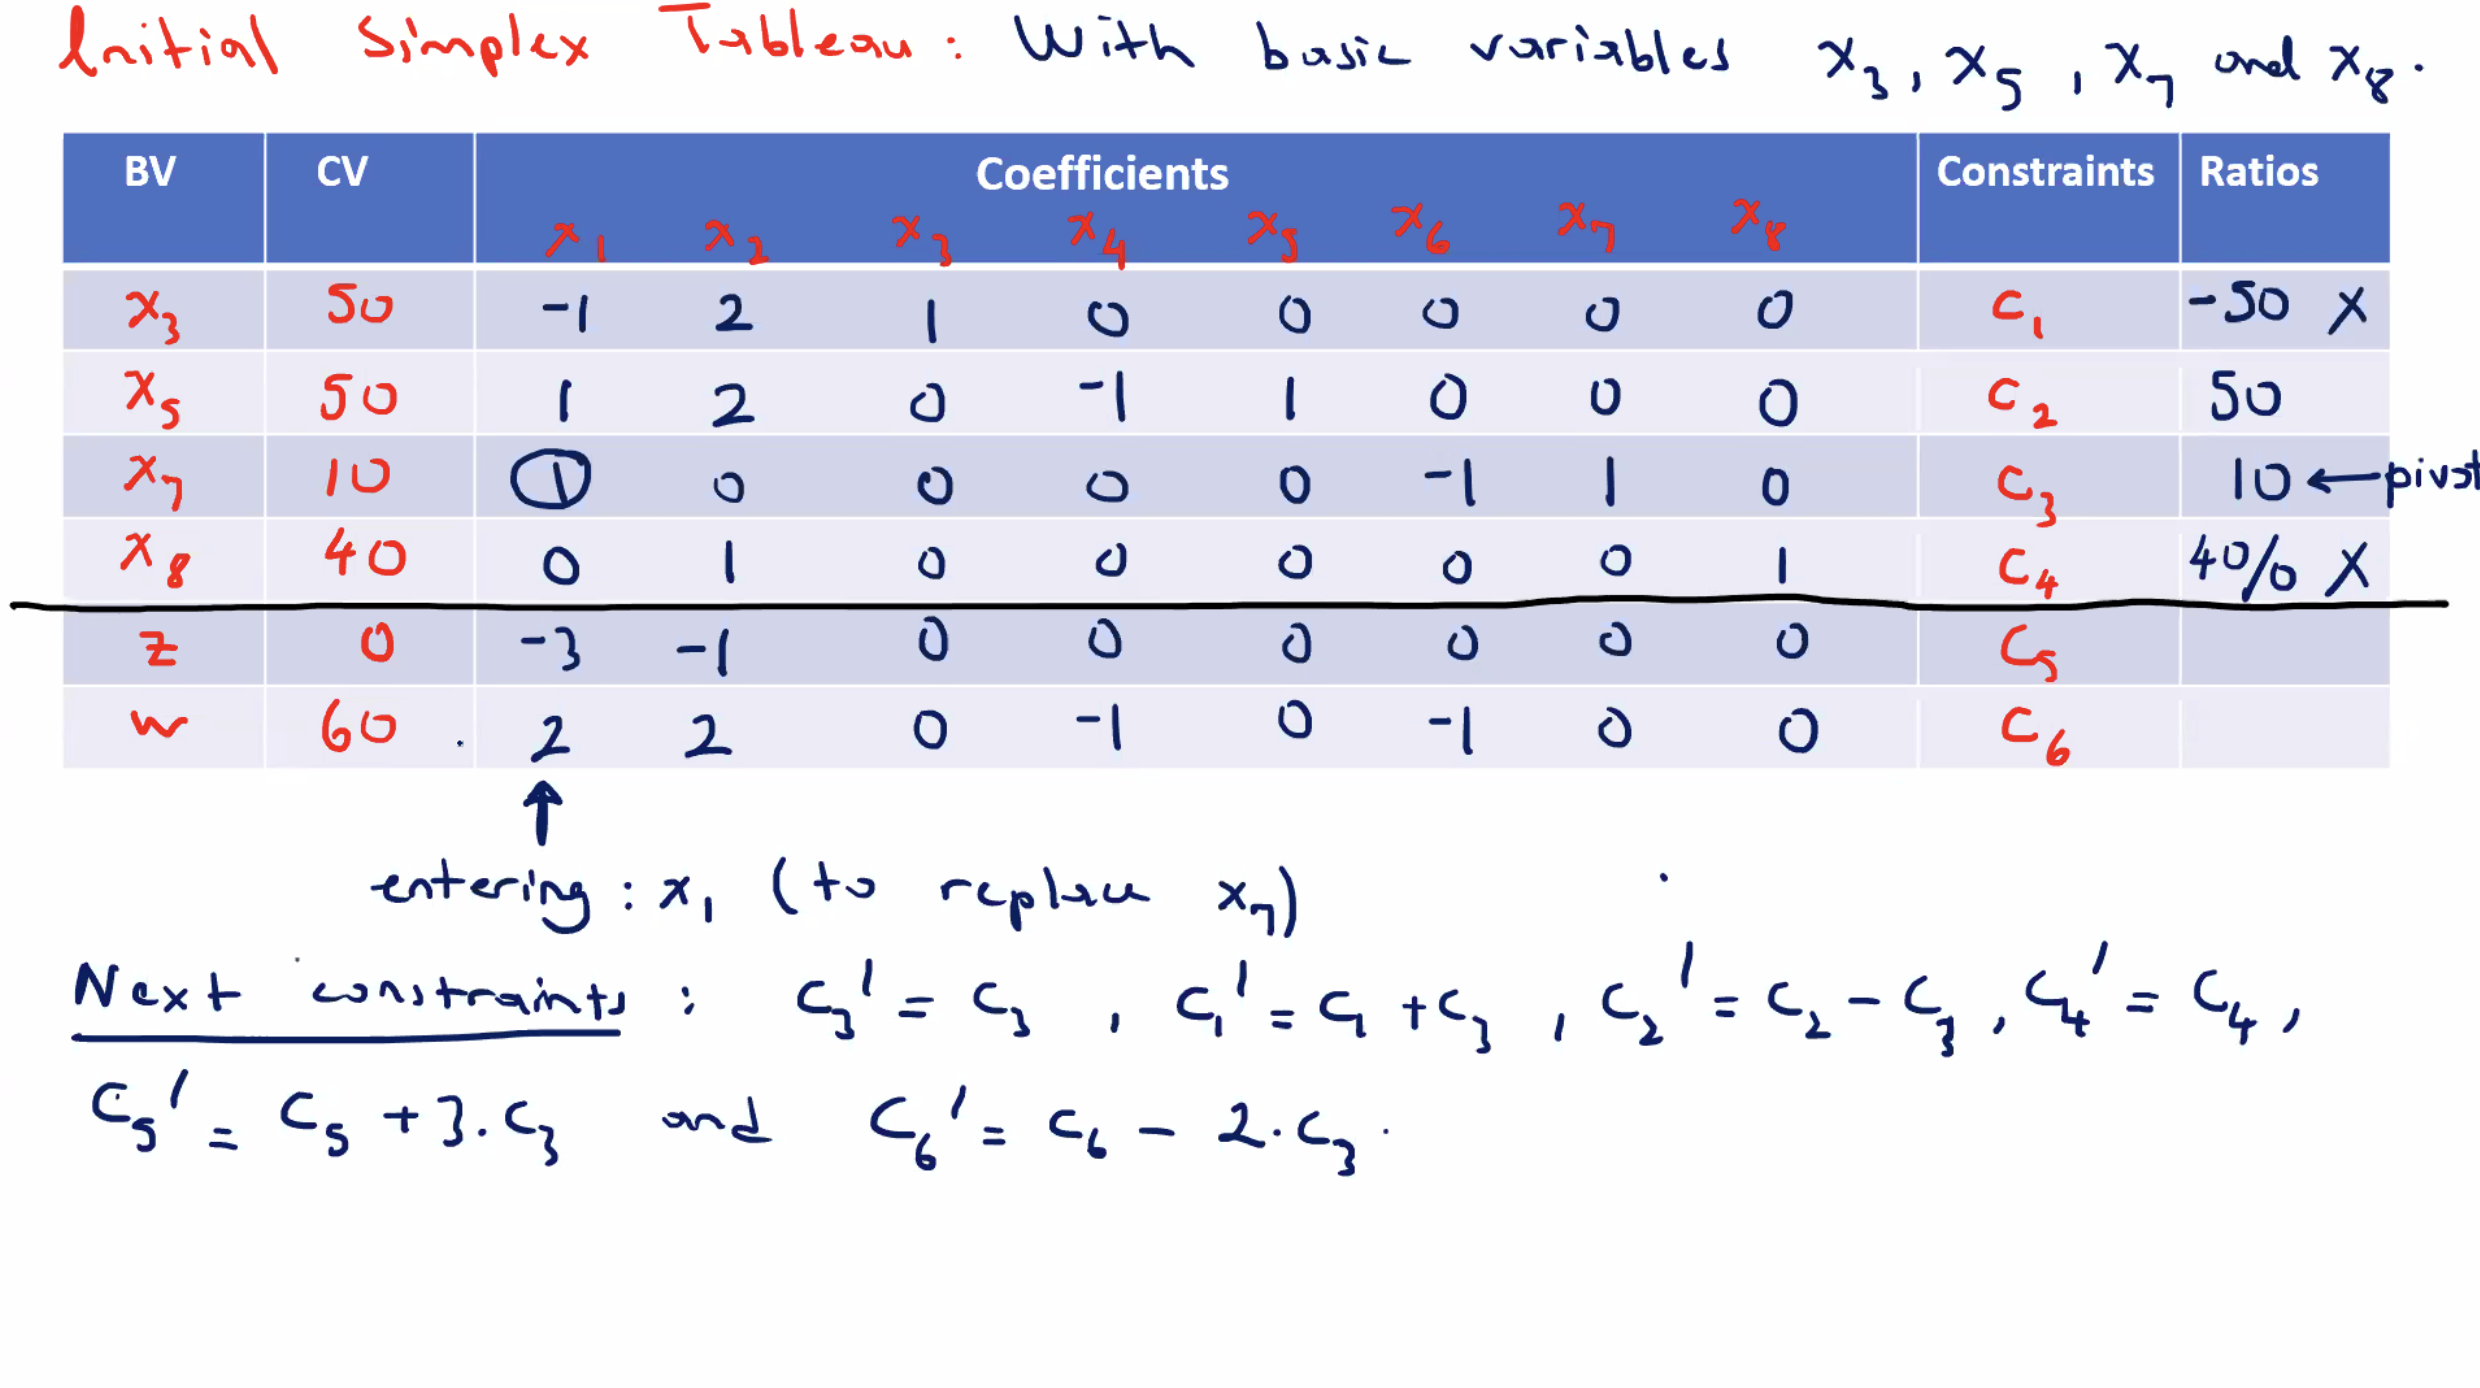 Initial Simplex Tableau: With basic variables x₃, x₅, x₇ and x₈.
BV CV Coefficients Constraints Ratios
x₁ x₂ x₃ x₄ x₅ x₆ x₇ x₈
x₃ 50 -1 2 1 0 0 0 0 0 C₁ -50 X
x₅ 50 1 2 0 -1 1 0 0 0 C₂ 50
x₇ 10 1 0 0 0 0 -1 1 0 C₃ 10 ← pivot
x₈ 40 0 1 0 0 0 0 0 1 C₄ 40/0 X
z 0 -3 -1 0 0 0 0 0 0 C₅
w 60 2 2 0 -1 0 -1 0 0 C₆
↑
entering: x₁ (to replace x₇)
Next constraints: C₃' = C₃, C₁' = C₁ + C₃, C₂' = C₂ - C₃, C₄' = C₄,
C₅' = C₅ + 3·C₃ and C₆' = C₆ - 2·C₃.